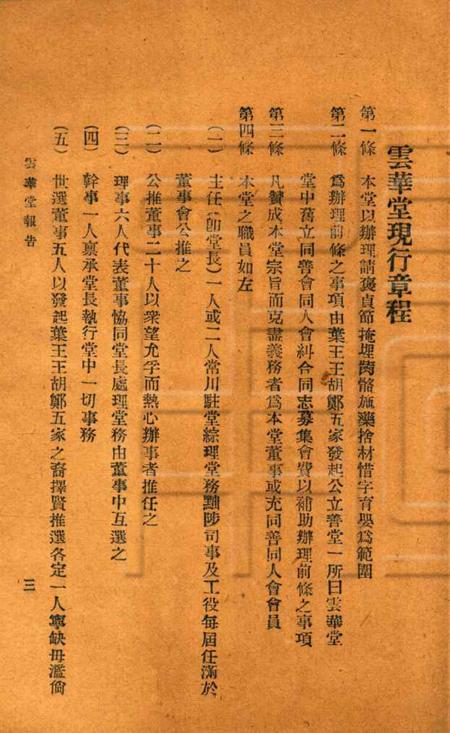 雲華堂現行章程
第一條　本堂以辦理請褒貞節掩埋胔骼施藥捨材惜字育嬰爲範圍
第二條　爲辦理前條之事項由葉王王胡鄭五家發起公立善堂一所曰雲華堂
堂中舊立同善會同人會糾合同志募集會費以補助辦理前條之事項
第三條　凡贊成本堂宗旨而克盡義務者爲本堂董事或充同善同人會會員
第四條　本堂之職員如左
(一)　主任(卽堂長)一人或二人常川駐堂綜理堂務黜陟司事及工役每屆任滿於
董事會公推之
(二)　公推董事二十人以衆望允孚而熱心辦事者推任之
(三)　理事六人代表董事協同堂長處理堂務由董事中互選之
(四)　幹事一人禀承堂長執行堂中一切事務
(五)　世選董事五人以發起葉王王胡鄭五家之裔擇賢推選各定一人寧缺毋濫倘
雲華堂報告
三